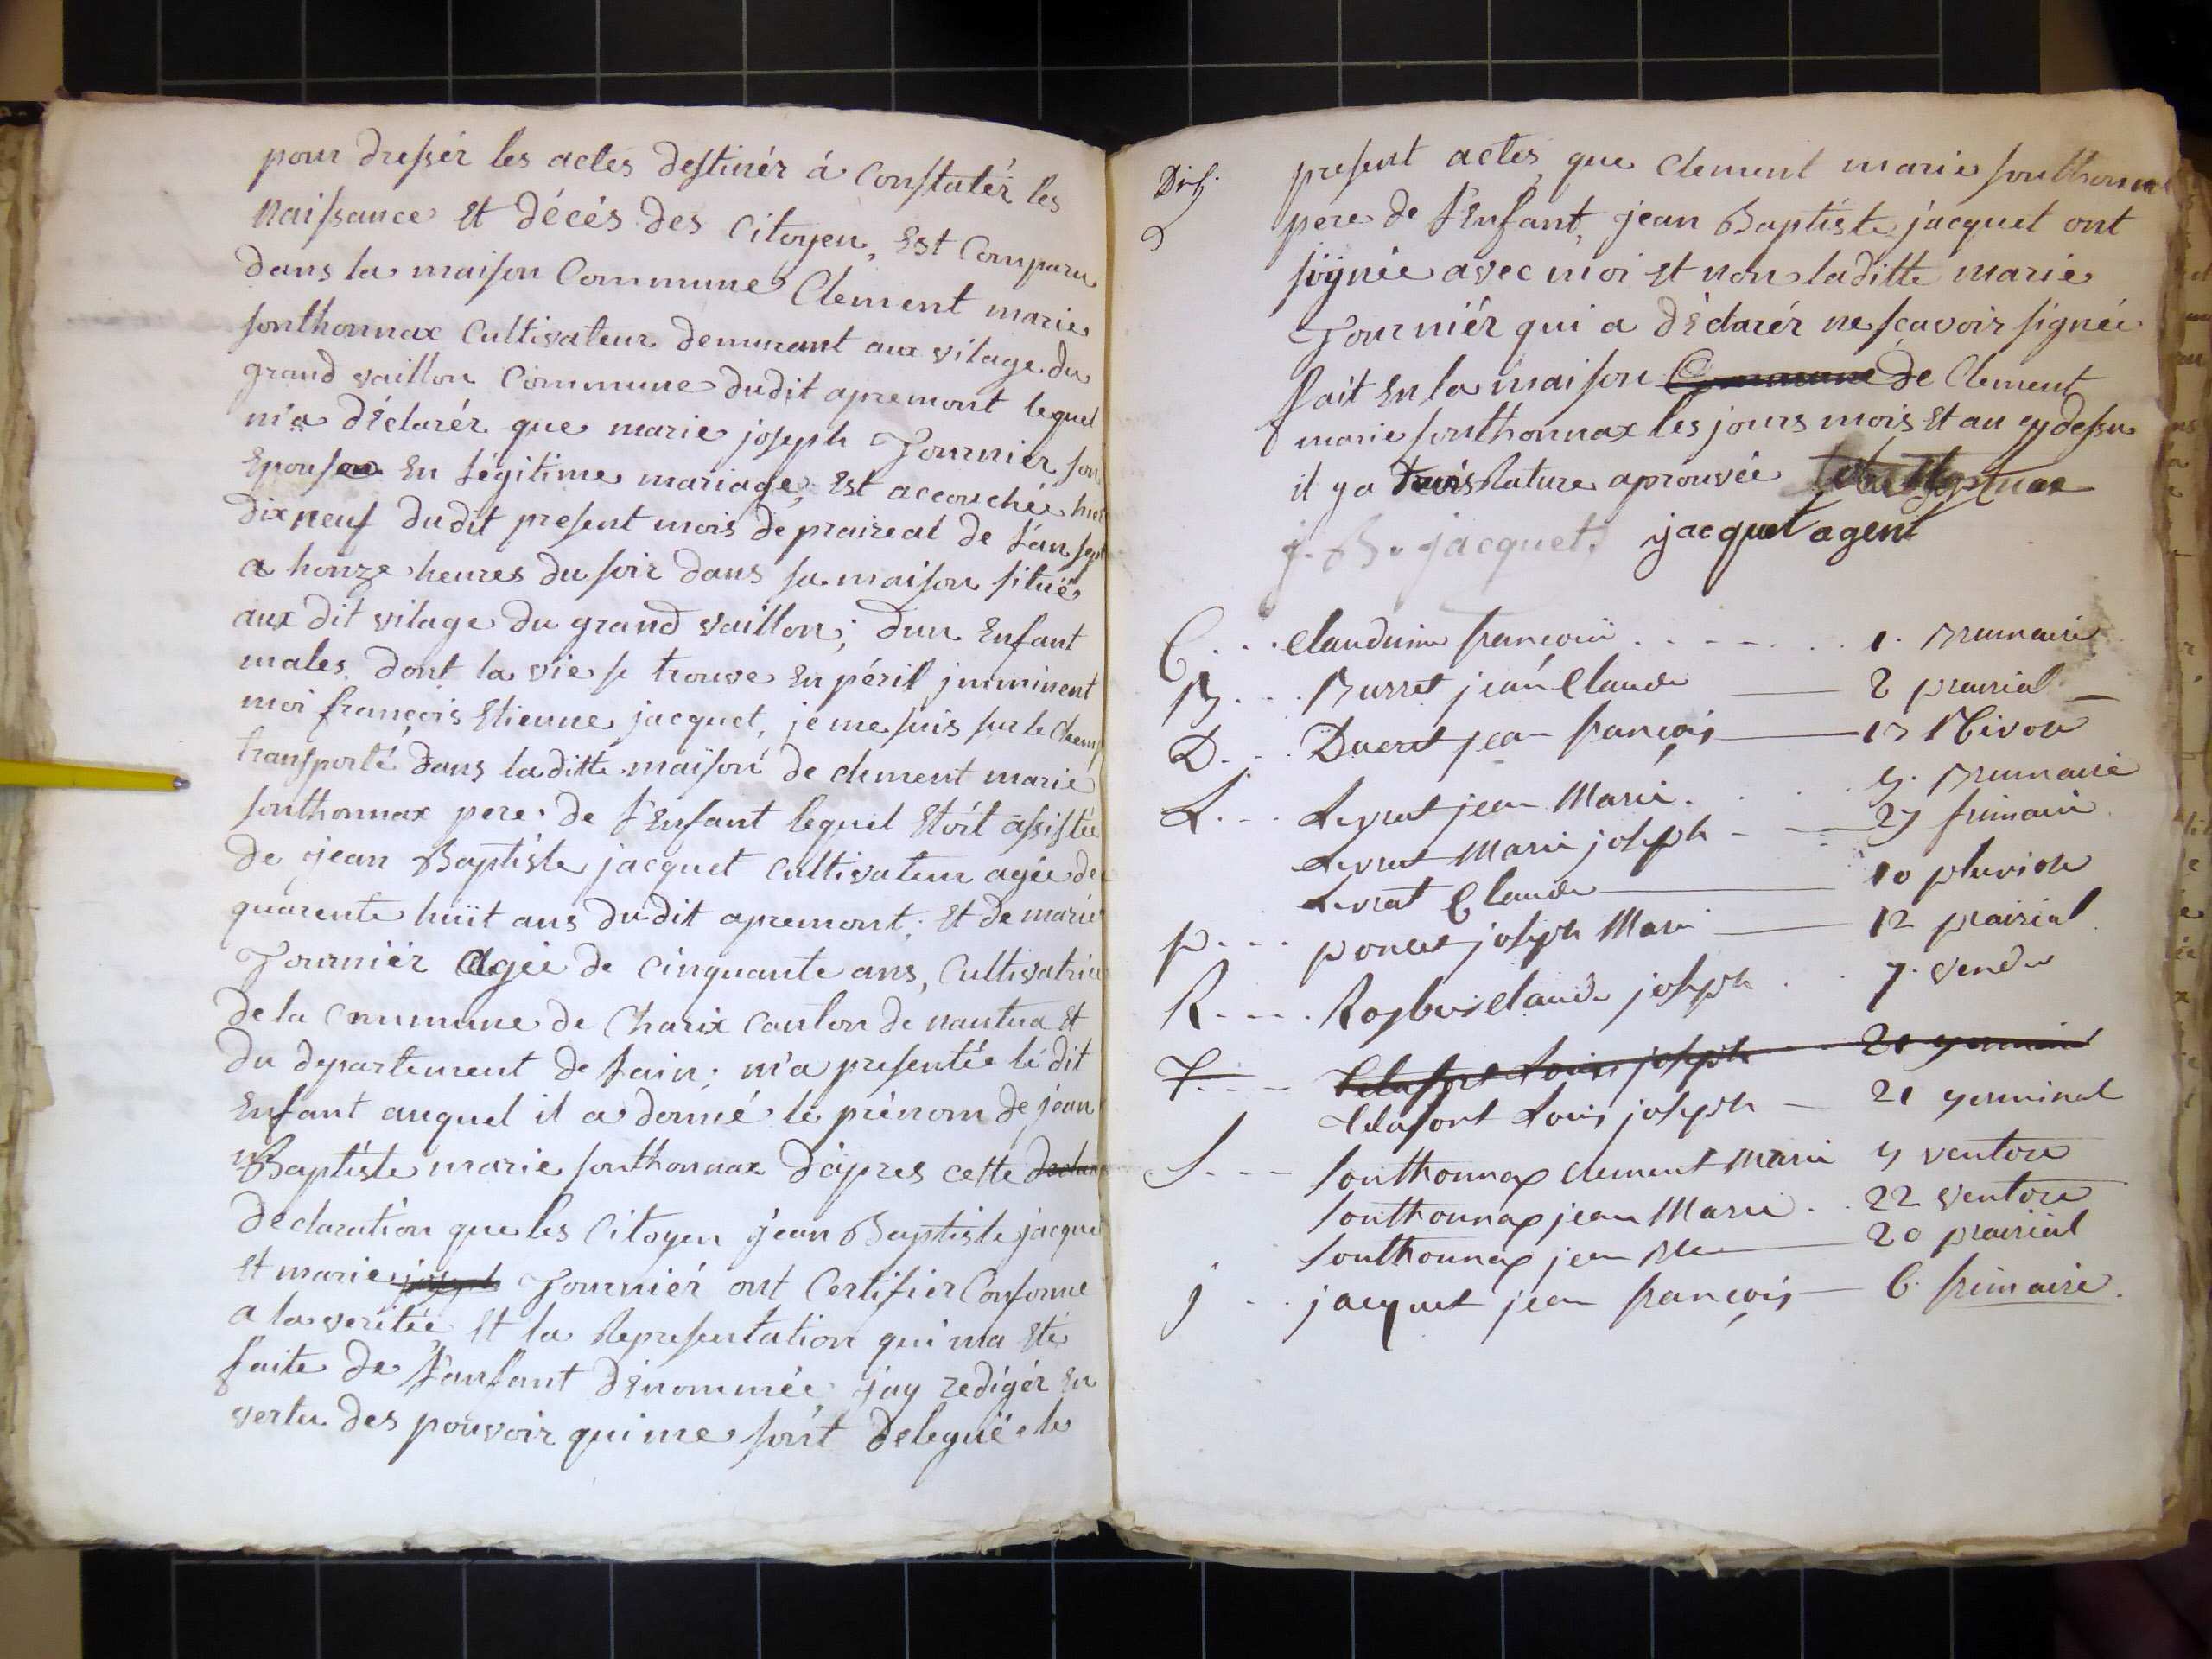 pour dresser les actes destinér á Constatér les
naissance Et décés des Citoyen, Est Comparu
dans la maison Commune Clement marie
sonthonnax Cultivateur demurant aux vilage du
grand vaillon Commune dudit apremont lequel
m'a déclarér que marie joseph Tournier son
Epouse En légitime mariage, Est accouchée hier
dix neuf dudit present mois de praireal de l'an sept
a honze heures du soir dans sa maison situé
aux dit vilage du grand vaillon; dun Enfant
males dont la vie se trouve En péril jmminent
moi françois Etienne jacquet, je me suis sur le Champ
transporté dans laditte maison de clement marie
sonthonnax pere de l'Enfant lequel Etoit assistée
de jean Baptiste jacquet cultivateur agée de
quarente huit ans dudit apremont; Et de marie
Tourniér agée de Cinquante ans, Cultivatrice
de la Cmmmune de Charix canton de nantua Et
du departement de Lain; m'a presentée le dit
Enfant auquel il a donné le prénom de jean
Baptiste marie sonthonnax d'apres cette declara
déclaration que les Citoyen jean Baptiste jacquet
Et marie joseph Tourniér ont Certifier Conforme
a la veritée Et la Representation qui ma Eté
faite de l'anfant dénommée, j'ay redigér En
vertu des pouvoir qui me sont delegué le
present actes que Clement marie sonthonnax
pere de l'Enfant, jean Baptiste jacquet ont
signée avec moi Et non laditte marie
Tourniér qui a déclarér ne sçavoir signée
fait En la maison Commune de Clement
marie sonthonnax les jours mois Et an cy dessu
il y a trois Rature aprouvée
j. B. jacquet jacquet agent
C... Claudinne françoise 1. Brumaire
B... Burret jean Claude 2 prairial
D... Ducret jean françois 13 Nivose
L... Levrat jean Marie 9. Brumaire
Levrat Marie joseph 27 frimaire
Levrat Claude 10 pluviose
p... poncet joseph Marie 12 prairial
R... Roybier claude joseph 7. vendre
T... Telafort Louis joseph 21 germinal
Telafort Louis joseph 21 germinal
S... Sonthonnax clement Marie 9 ventose
Sonthonnax jean Marie 22 ventose
Sonthonnax jean Bte 20 prairial
j.. jacquet jean françois 6. frimaire.